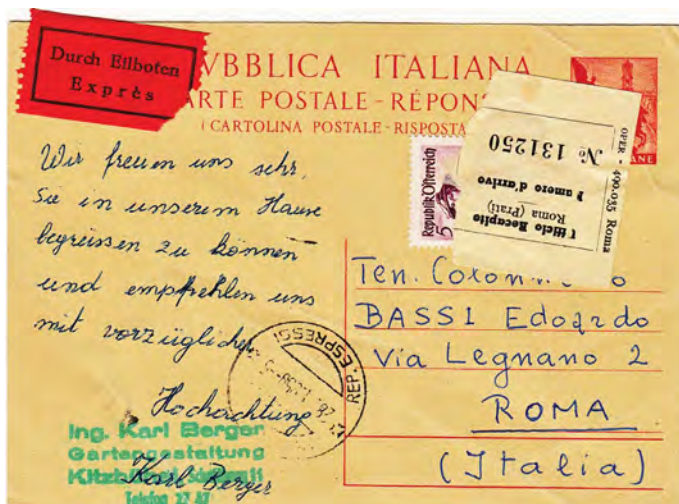 Durch Eilboten
Exprès
VBBLICA ITALIANA
ARTE POSTALE - RÉPONS
( CARTOLINA POSTALE - RISPOSTA
OPER - 400.035 Roma
Nº 131250
Numero d'arrivo
Roma (Prati)
Ufficio Recapito
ANE
Republik Österreich
5
Wir freuen uns sehr,
Sie in unserem Hause
begrüssen zu können
und empfehlen uns
mit vorzüglicher
Hochachtung
Karl Berger
Ing. Karl Berger
Gartengestaltung
Telefon 27 87
REP. ESPRESSI
Ten. Colon o
BASSI Edoardo
Via Legnano 2
ROMA
(Italia)